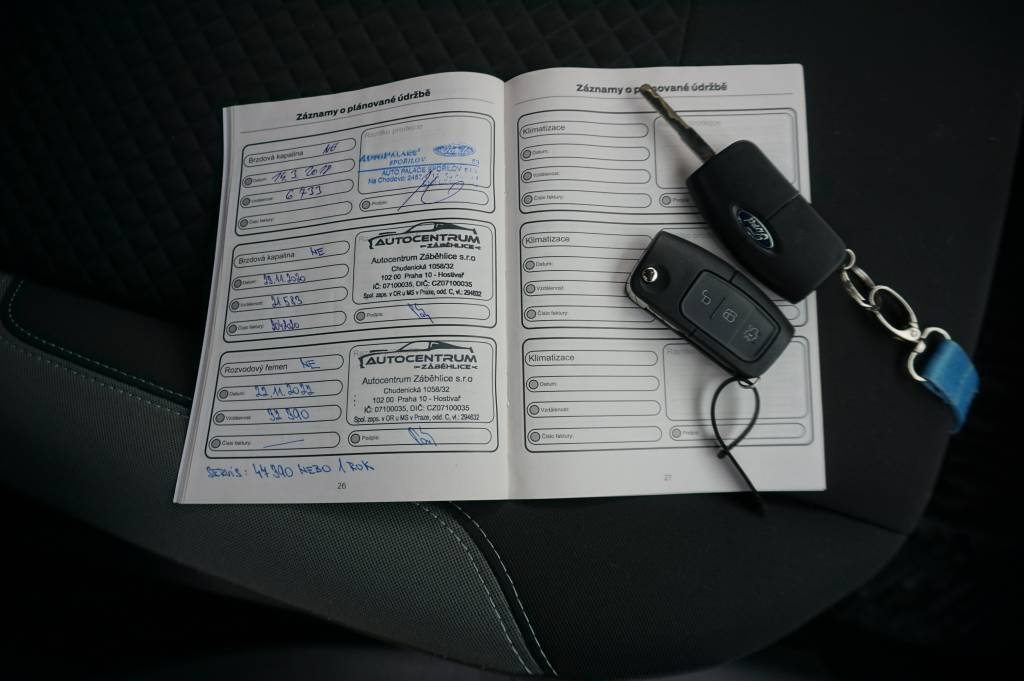 Záznamy o plánované údržbě
Brzdová kapalina NE
Datum: 14 3 2019
Vzdálenost: 6 733
Číslo faktury:
Razítko prodejce
SPOŘILOV
AUTO PALACE SPOŘILOV
Na Chodovci
Podpis:
Brzdová kapalina NE
Datum: 23.11.2020
Vzdálenost: 21 583
Číslo faktury:
AUTOCENTRUM
ZÁBĚHLICE
Autocentrum Záběhlice s.r.o
Chudenická 1058/32
102 00 Praha 10 - Hostivař
IČ: 07100035, DIČ: CZ07100035
Spol. zaps. v OR u MS v Praze, odd. C, vl.: 294632
Podpis:
Rozvodový řemen NE
Datum: 22.11.2022
Vzdálenost: 32 390
Číslo faktury: —
AUTOCENTRUM
ZÁBĚHLICE
Autocentrum Záběhlice s.r.o
Chudenická 1058/32
102 00 Praha 10 - Hostivař
IČ: 07100035, DIČ: CZ07100035
Spol. zaps. v OR u MS v Praze, odd. C, vl.: 294632
Podpis:
SERVIS: 47 390 NEBO 1 ROK
26
Záznamy o plánované údržbě
Klimatizace
Datum:
Vzdálenost:
Číslo faktury:
Klimatizace
Datum:
Vzdálenost:
Číslo faktury:
Klimatizace
Datum:
Vzdálenost:
Číslo faktury:
Podpis:
27
Ford